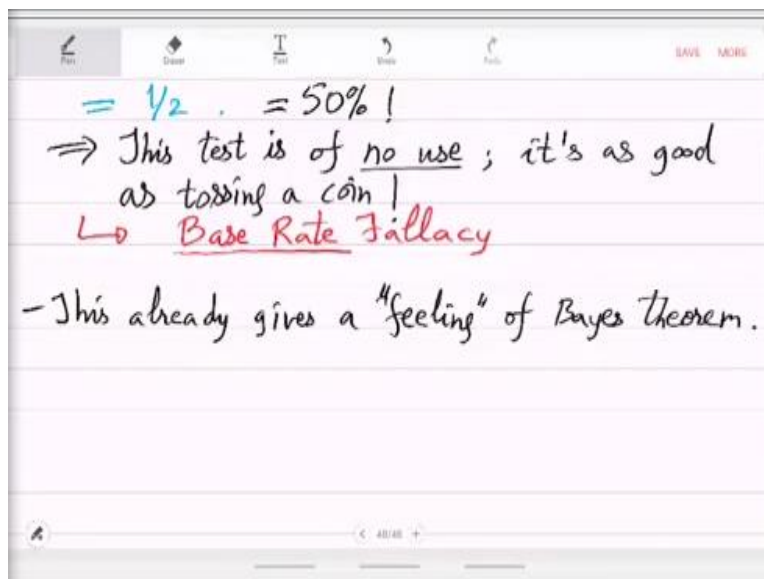 Pen Eraser Text Undo Redo SAVE MORE
= 1/2 . = 50% !
⇒ This test is of no use ; it's as good
as tossing a coin !
↳ Base Rate Fallacy
- This already gives a "feeling" of Bayes theorem .
< 48/48 +